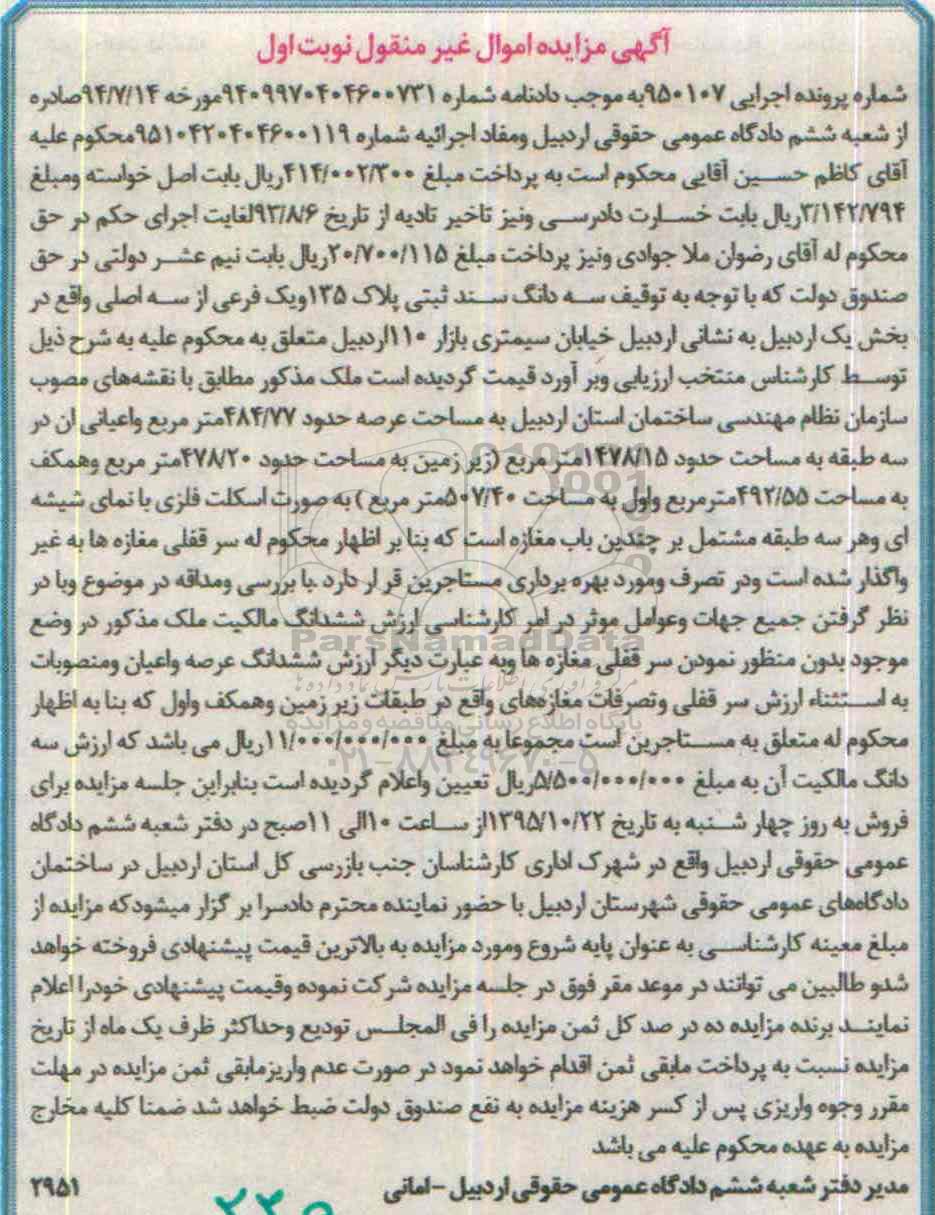 آگهی مزایده اموال غیر منقول نوبت اول
شماره پرونده اجرایی ۹۵۰۱۰۷به موجب دادنامه شماره ۹۴۰۹۹۷۰۴۰۴۶۰۰۷۳۱مورخه ۹۴/۷/۱۴صادره
از شعبه ششم دادگاه عمومی حقوقی اردبیل ومفاد اجرائیه شماره ۹۵۱۰۴۲۰۴۰۴۶۰۰۱۱۹محکوم علیه
آقای کاظم حسین آقایی محکوم است به پرداخت مبلغ ۴۱۴/۰۰۲/۳۰۰ریال بابت اصل خواسته ومبلغ
۳/۱۴۲/۷۹۴ریال بابت خسارت دادرسی ونیز تاخیر تادیه از تاریخ ۹۳/۸/۶لغایت اجرای حکم در حق
محکوم له آقای رضوان ملا جوادی ونیز پرداخت مبلغ ۲۰/۷۰۰/۱۱۵ریال بابت نیم عشر دولتی در حق
صندوق دولت که با توجه به توقیف سه دانگ سند ثبتی پلاک ۱۳۵ویک فرعی از سه اصلی واقع در
بخش یک اردبیل به نشانی اردبیل خیابان سیمتری بازار ۱۱۰اردبیل متعلق به محکوم علیه به شرح ذیل
توسط کارشناس منتخب ارزیابی وبر آورد قیمت گردیده است ملک مذکور مطابق با نقشه‌های مصوب
سازمان نظام مهندسی ساختمان استان اردبیل به مساحت عرصه حدود ۴۸۴/۷۷متر مربع واعیانی ان در
سه طبقه به مساحت حدود ۱۴۷۸/۱۵متر مربع (زیر زمین به مساحت حدود ۴۷۸/۲۰متر مربع وهمکف
به مساحت ۴۹۲/۵۵مترمربع واول به مساحت ۵۰۷/۴۰متر مربع ) به صورت اسکلت فلزی با نمای شیشه
ای وهر سه طبقه مشتمل بر چندین باب مغازه است که بنا بر اظهار محکوم له سر قفلی مغازه ها به غیر
واگذار شده است ودر تصرف ومورد بهره برداری مستاجرین قرار دارد .با بررسی ومداقه در موضوع وبا در
نظر گرفتن جمیع جهات وعوامل موثر در امر کارشناسی ارزش ششدانگ مالکیت ملک مذکور در وضع
موجود بدون منظور نمودن سر قفلی مغازه ها وبه عبارت دیگر ارزش ششدانگ عرصه واعیان ومنصوبات
به استثناء ارزش سر قفلی وتصرفات مغازه‌های واقع در طبقات زیر زمین وهمکف واول که بنا به اظهار
محکوم له متعلق به مستاجرین است مجموعا به مبلغ ۱۱/۰۰۰/۰۰۰/۰۰۰ریال می باشد که ارزش سه
دانگ مالکیت آن به مبلغ ۵/۵۰۰/۰۰۰/۰۰۰ریال تعیین واعلام گردیده است بنابراین جلسه مزایده برای
فروش به روز چهار شنبه به تاریخ ۱۳۹۵/۱۰/۲۲از ساعت ۱۰الی ۱۱صبح در دفتر شعبه ششم دادگاه
عمومی حقوقی اردبیل واقع در شهرک اداری کارشناسان جنب بازرسی کل استان اردبیل در ساختمان
دادگاه‌های عمومی حقوقی شهرستان اردبیل با حضور نماینده محترم دادسرا بر گزار میشودکه مزایده از
مبلغ معینه کارشناسی به عنوان پایه شروع ومورد مزایده به بالاترین قیمت پیشنهادی فروخته خواهد
شدو طالبین می توانند در موعد مقر فوق در جلسه مزایده شرکت نموده وقیمت پیشنهادی خودرا اعلام
نمایند برنده مزایده ده در صد کل ثمن مزایده را فی المجلس تودیع وحداکثر ظرف یک ماه از تاریخ
مزایده نسبت به پرداخت مابقی ثمن اقدام خواهد نمود در صورت عدم واریزمابقی ثمن مزایده در مهلت
مقرر وجوه واریزی پس از کسر هزینه مزایده به نفع صندوق دولت ضبط خواهد شد ضمنا کلیه مخارج
مزایده به عهده محکوم علیه می باشد
مدیر دفتر شعبه ششم دادگاه عمومی حقوقی اردبیل –امانی ۲۹۵۱
ParsNamadData
پایگاه اطلاع رسانی مناقصه و مزایده
۰۲۱-۸۸۳۴۹۶۷۰-۵